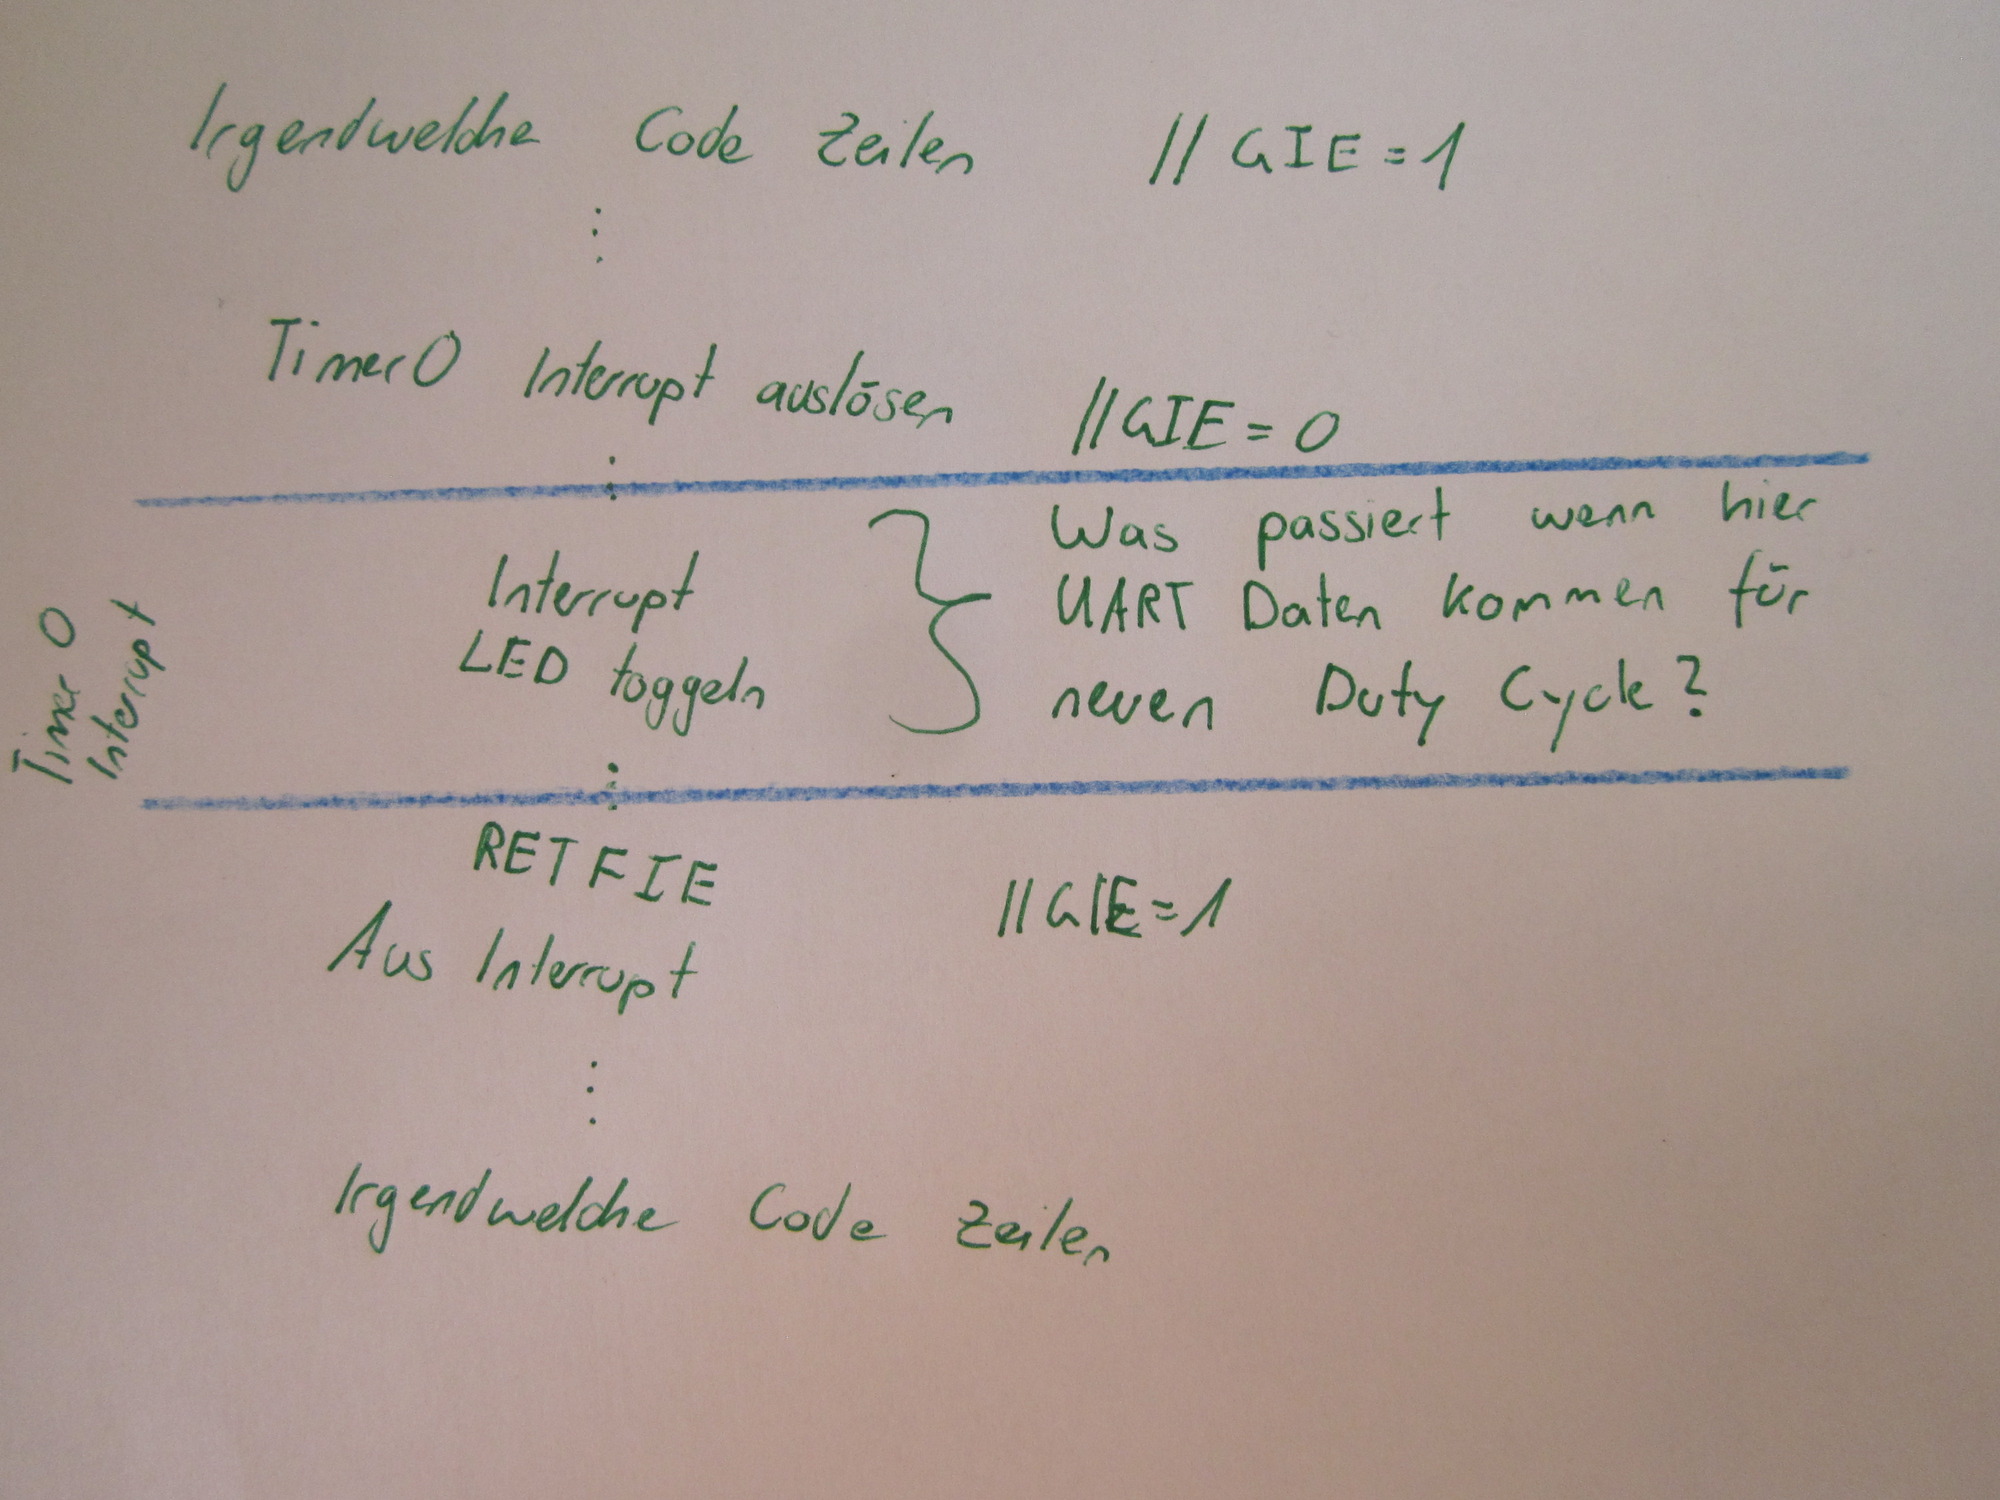 Irgendwelche Code Zeilen // GIE = 1
Timer0 Interrupt auslösen // GIE = 0
Timer 0
Interrupt
Interrupt
LED toggeln
Was passiert wenn hier
UART Daten kommen für
neuen Duty Cycle?
RETFIE
Aus Interrupt
// GIE = 1
Irgendwelche Code Zeilen